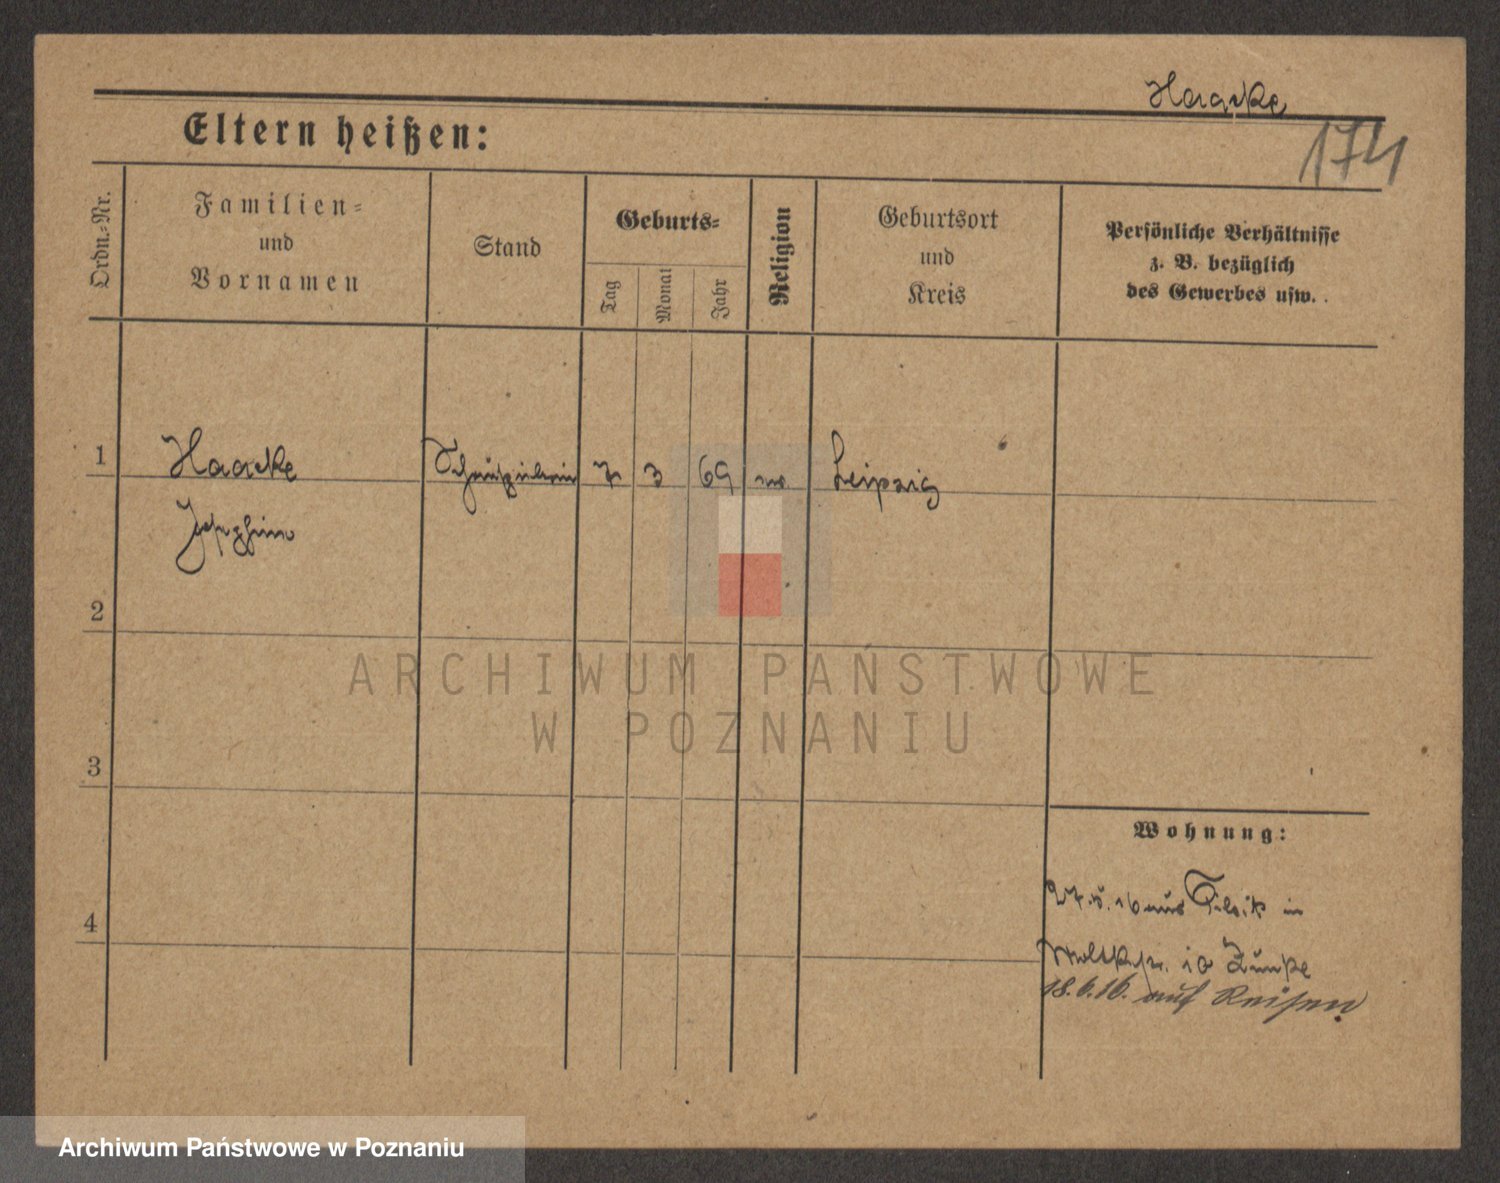 Haacke
174
Eltern heißen:
Ordn.-Nr.
Familien-
und
Vornamen
Stand
Geburts-
Tag
Monat
Jahr
Religion
Geburtsort
und
Kreis
Persönliche Verhältnisse
z. B. bezüglich
des Gewerbes usw.
1
Haacke
Schauspielerin
7
3
69
Leipzig
Josephine
2
ARCHIWUM PAŃSTWOWE
W POZNANIU
3
Wohnung:
4
27.5.16 aus Tilsit in
Moltkestr. 10
18.6.16. auf Reisen
Archiwum Państwowe w Poznaniu